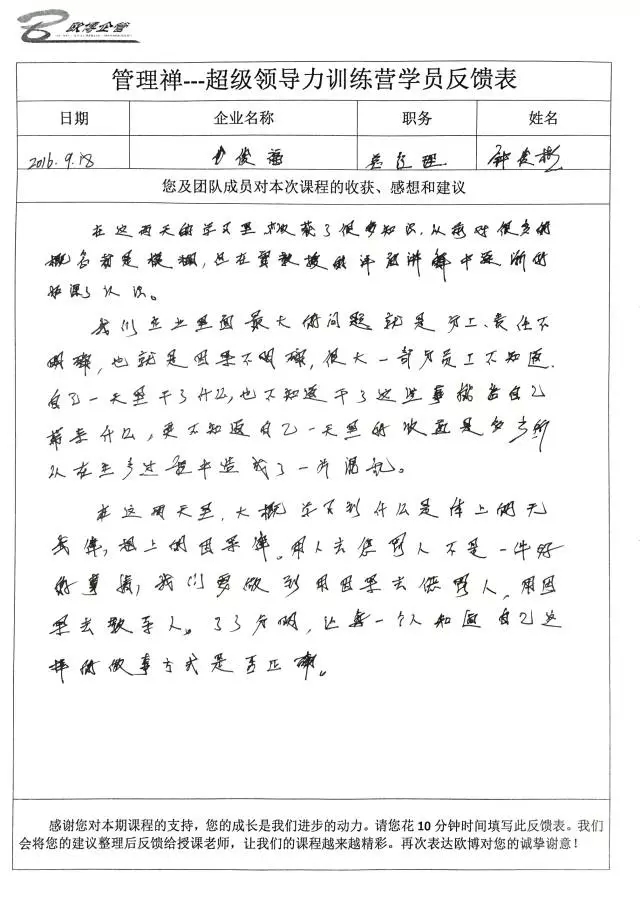 欧博企管
管理禅---超级领导力训练营学员反馈表
日期 企业名称 职务 姓名
2016.9.18 俊福 总经理
您及团队成员对本次课程的收获、感想和建议
在这两天的学习里收获了很多知识,从
概念都是模糊,在教授的讲解中逐渐的
加深了认识。
我们企业里面最大的问题就是分工、责任不
明确,也就是因果不明确,很大一部分员工不知道
自己一天里干了什么,也不知道干了这些事给自己
带来什么,更不知道自己一天里的收益是多少所
以在生产过程中造成了一片混乱。
在这两天里,大概学习到什么是体上的无
我律,相上的因果律。用人去管人不是一件好
的事情,我们要做到用因果去管人,用因
果去人。了了分明,让每一个人知道自己这
样的做事方式是否正确。
感谢您对本期课程的支持,您的成长是我们进步的动力。请您花 10 分钟时间填写此反馈表。我们
会将您的建议整理后反馈给授课老师,让我们的课程越来越精彩。再次表达欧博对您的诚挚谢意!